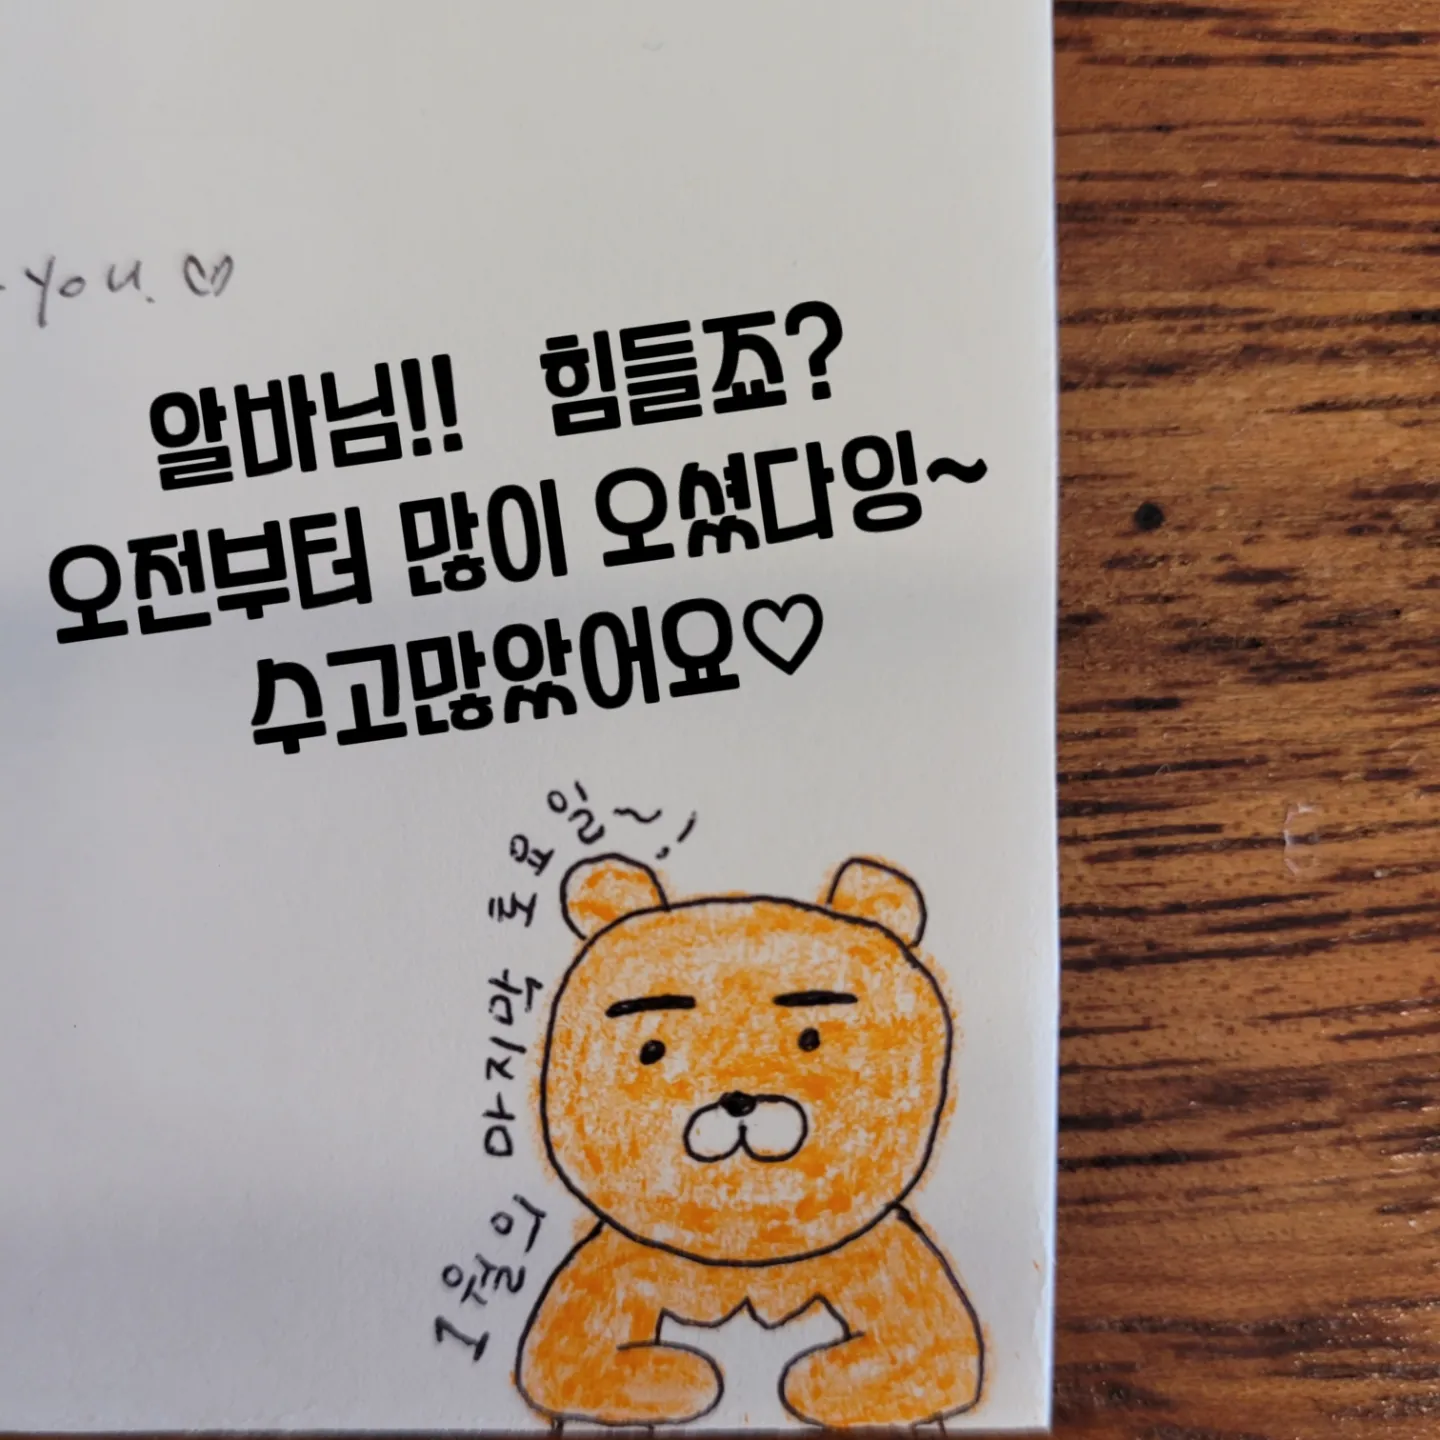 you. ♡
알바님!! 힘들죠?
오전부터 많이 오셨다잉~
수고많았어요♡
1월의 마지막 토요일~!